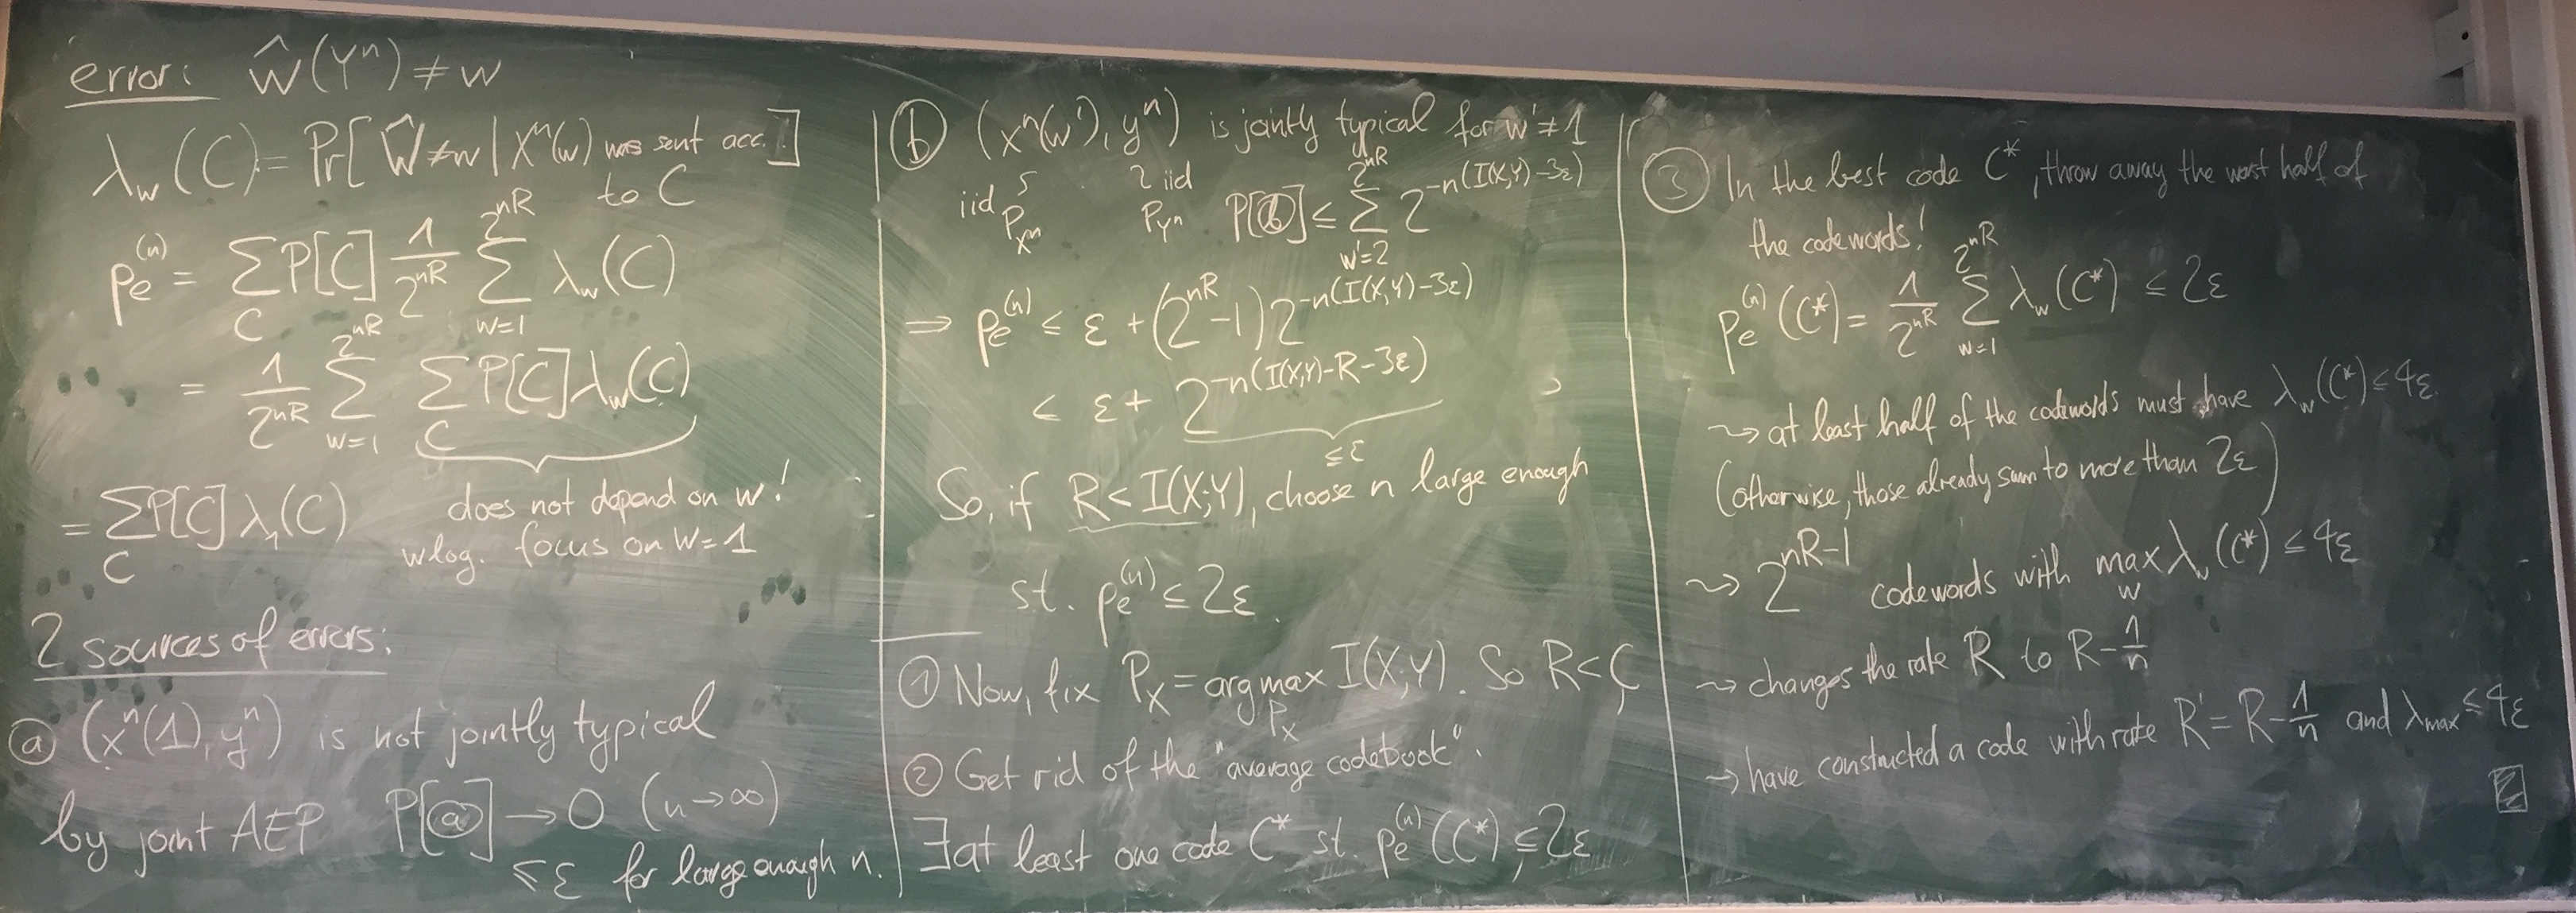 error: ŵ(Yⁿ) ≠ w
λ_w(C) = Pr[Ŵ≠w | Xⁿ(w) was sent acc. to C]
pe^(n) = Σ_C P[C] 1/2^{nR} Σ_{w=1}^{2^{nR}} λ_w(C)
= 1/2^{nR} Σ_{w=1}^{2^{nR}} Σ_C P[C] λ_w(C)
does not depend on w!
= Σ_C P[C] λ_1(C)
wlog. focus on W=1
2 sources of errors:
ⓐ (xⁿ(1), yⁿ) is not jointly typical
by joint AEP P[ⓐ] → 0 (n→∞)
≤ ε for large enough n.
ⓑ (xⁿ(w'), yⁿ) is jointly typical for w'≠1
iid P_{Xⁿ} iid P_{Yⁿ} P[ⓑ] ≤ Σ_{w'=2}^{2^{nR}} 2^{-n(I(X;Y)-3ε)}
⇒ pe^(n) ≤ ε + (2^{nR}-1) 2^{-n(I(X;Y)-3ε)}
≤ ε + 2^{-n(I(X;Y)-R-3ε)}
≤ε
So, if R < I(X;Y), choose n large enough
st. pe^(n) ≤ 2ε.
① Now, fix P_X = argmax_{P_X} I(X;Y). So R<C
② Get rid of the "average codebook".
∃ at least one code C* st. pe^(n)(C*) ≤ 2ε
③ In the best code C*, throw away the worst half of
the codewords!
pe^(n)(C*) = 1/2^{nR} Σ_{w=1}^{2^{nR}} λ_w(C*) ≤ 2ε
⇝ at least half of the codewords must have λ_w(C*) ≤ 4ε.
(otherwise, those already sum to more than 2ε)
⇝ 2^{nR-1} codewords with max_w λ_w(C*) ≤ 4ε
⇝ changes the rate R to R-1/n
⇝ have constructed a code with rate R' = R-1/n and λ_max ≤ 4ε